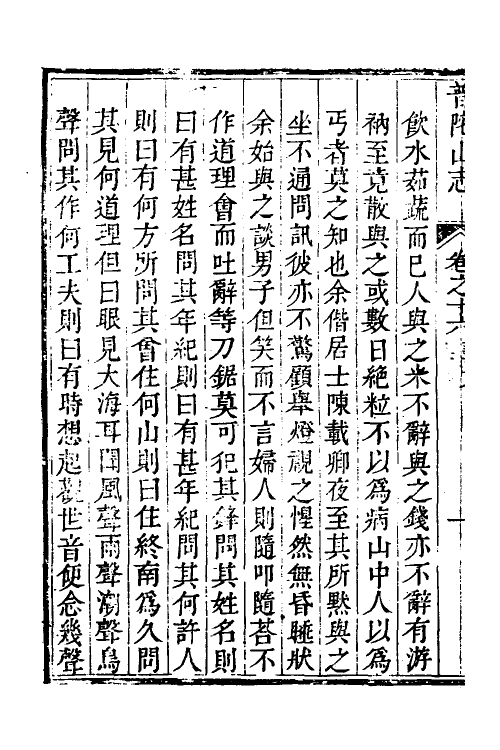 普陀山志
卷之十六
飲水茹蔬而已人與之米不辭與之錢亦不辭有游
衲至竟散與之或數日絶粒不以爲病山中人以爲
丐者莫之知也余偕居士陳載卿夜至其所黙與之
坐不通問訊彼亦不驚顧舉燈視之惺然無昏睡狀
余始與之談男子但笑而不言婦人則隨叩隨荅不
作道理會而吐辭等刀鋸莫可犯其鋒問其姓名則
曰有甚姓名問其年紀則曰有甚年紀問其何許人
則曰有何方所問其曾住何山則曰住終南爲久問
其見何道理但曰眼見大海耳聞風聲雨聲潮聲鳥
聲問其作何工夫則曰有時想起觀世音便念幾聲